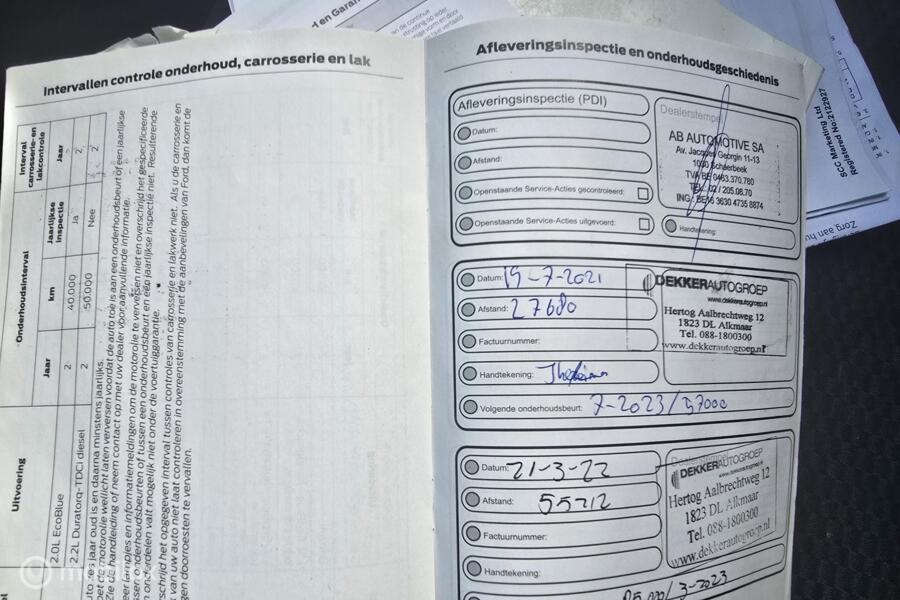 Intervallen controle onderhoud, carrosserie en lak
Uitvoering
Onderhoudsinterval
Interval carrosserie-en lakcontrole
Jaar
km
Jaarlijkse inspectie
Jaar
2.0L EcoBlue
2
40.000
Ja
2
2.2L Duratorq-TDCi diesel
2
50.000
Nee
2
jaar oud is en daarna minstens jaarlijks.
et de motorolie wellicht laten verversen voordat de auto toe is aan een onderhoudsbeurt of een jaarlijkse
Zie de handleiding of neem contact op met uw dealer voor aanvullende informatie.
eer lampjes en informatiemeldingen om de motorolie te verversen niet en overschrijd het gespecificeerde
ssen onderhoudsbeurten of tussen een onderhoudsbeurt en een jaarlijkse inspectie niet. Resulterende
n onderdelen valt mogelijk niet onder de voertuiggarantie.
rschrijd het opgegeven interval tussen controles van carrosserie en lakwerk niet. Als u de carrosserie en
k van uw auto niet laat controleren in overeenstemming met de aanbevelingen van Ford, dan komt de
gen doorroesten te vervallen.
Afleveringsinspectie en onderhoudsgeschiedenis
Afleveringsinspectie (PDI)
Datum:
Afstand:
Openstaande Service-Acties gecontroleerd:
Openstaande Service-Acties uitgevoerd:
Dealerstempel
AB AUTOMOTIVE SA
Av. Jacques Georgin 11-13
1030 Schaerbeek
TVA BE 0463.370.780
TEL. 02 / 205.08.70
ING: BE16 3630 4735 8874
Handtekening:
Datum: 19-7-2021
Afstand: 27680
Factuurnummer:
Handtekening:
Volgende onderhoudsbeurt: 7-2023/57000
DEKKERAUTOGROEP
www.dekkerautogroep.nl
Hertog Aalbrechtweg 12
1823 DL Alkmaar
Tel. 088-1800300
www.dekkerautogroep.nl
Datum: 21-3-22
Afstand: 55212
Factuurnummer:
Handtekening:
Dealerstempel
DEKKERAUTOGROEP
Hertog Aalbrechtweg 12
1823 DL Alkmaar
Tel. 088-1800300
www.dekkerautogroep.nl
/3-2023
SCC Marketing Ltd
Registered No: 2122927
Zorg aan hu